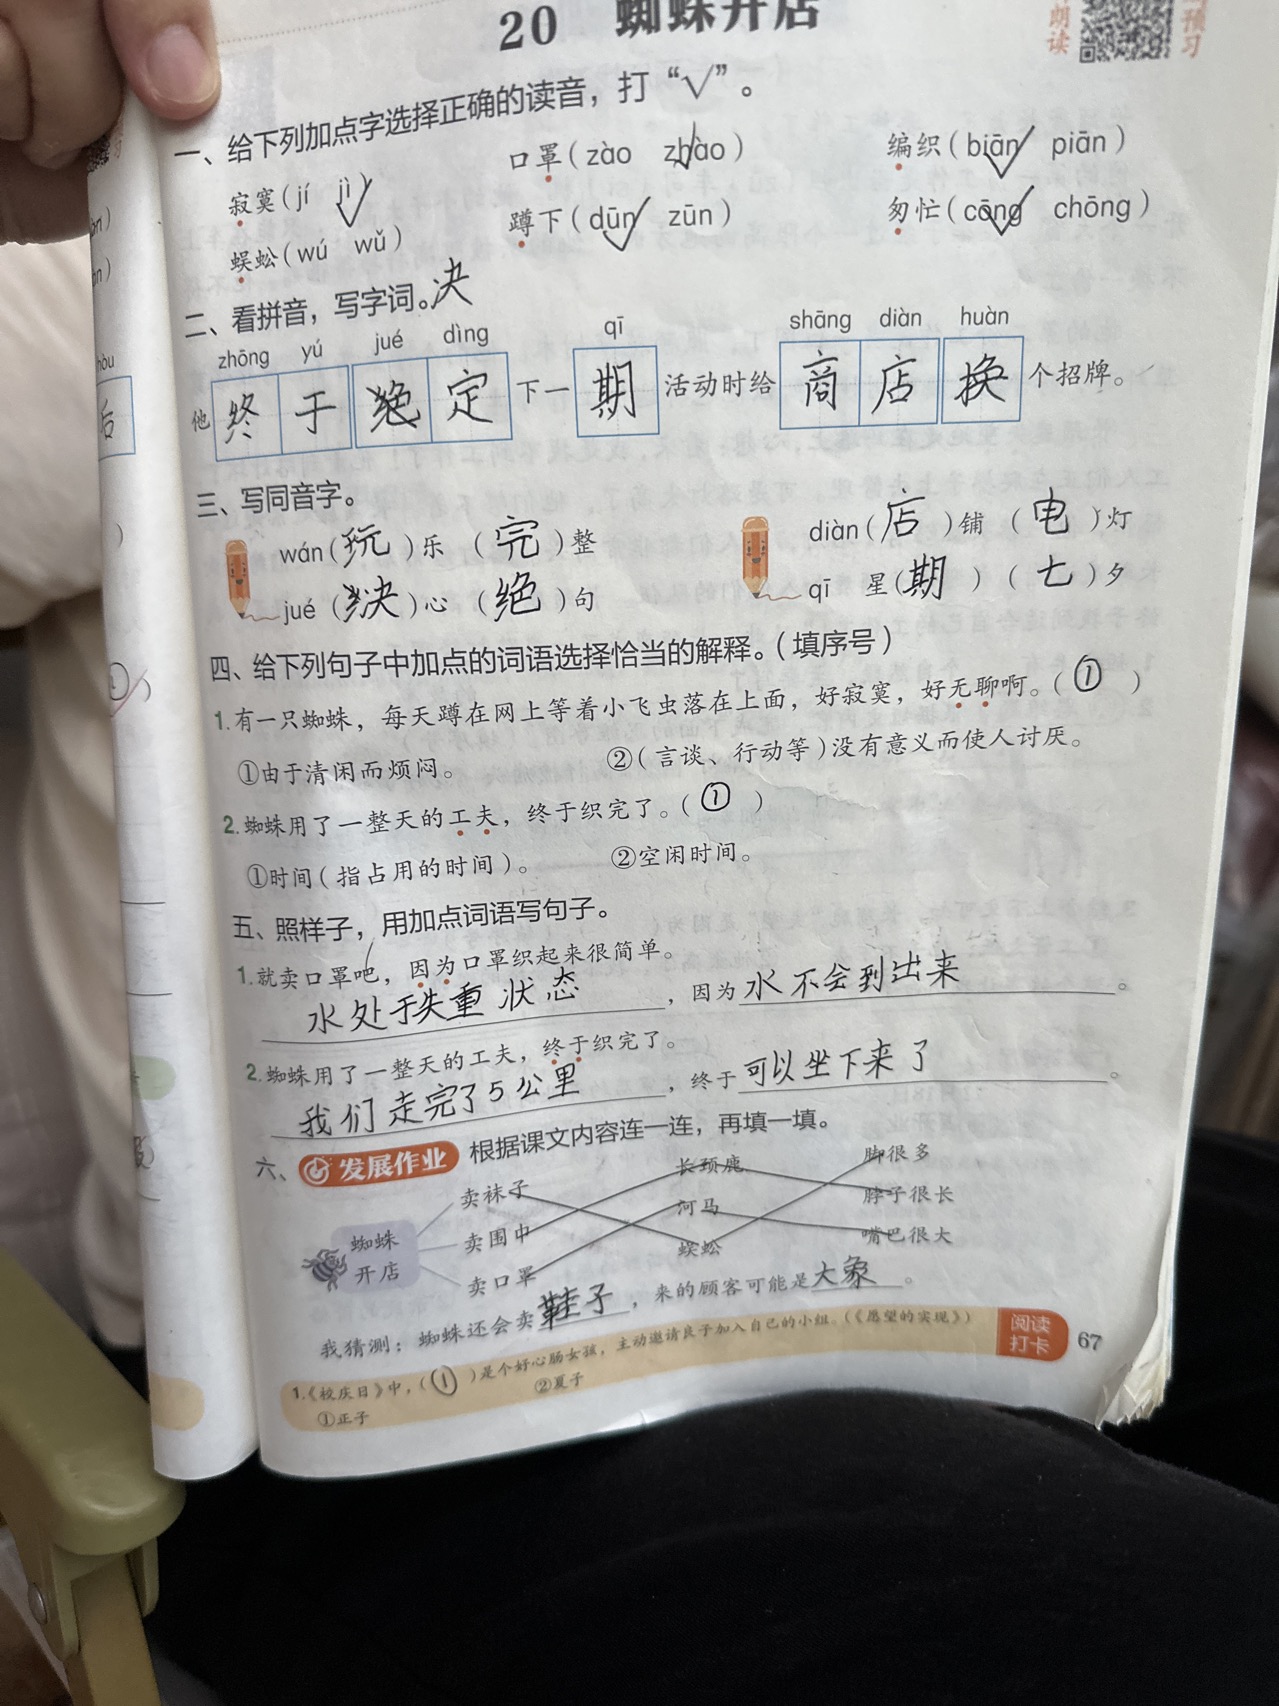 20 蜘蛛开店
朗读
预习
一、给下列加点字选择正确的读音，打“√”。
寂寞(jí jì) 口罩(zào zhào) 编织(biān piān)
蜈蚣(wú wǔ) 蹲下(dūn zūn) 匆忙(cōng chōng)
二、看拼音，写字词。决
zhōng yú jué dìng qī shāng diàn huàn
他 终于 绝定 下一 期 活动时给 商店 换 个招牌。
三、写同音字。
wán(玩)乐 (完)整 diàn(店)铺 (电)灯
jué(决)心 (绝)句 qī 星(期) (七)夕
四、给下列句子中加点的词语选择恰当的解释。(填序号)
1.有一只蜘蛛，每天蹲在网上等着小飞虫落在上面，好寂寞，好无聊啊。(①)
①由于清闲而烦闷。 ②(言谈、行动等)没有意义而使人讨厌。
2.蜘蛛用了一整天的工夫，终于织完了。(①)
①时间(指占用的时间)。 ②空闲时间。
五、照样子，用加点词语写句子。
1.就卖口罩吧，因为口罩织起来很简单。
水处于失重状态，因为水不会到出来。
2.蜘蛛用了一整天的工夫，终于织完了。
我们走完了5公里，终于可以坐下来了。
六、发展作业 根据课文内容连一连，再填一填。
卖袜子 长颈鹿 脚很多
蜘蛛开店 卖围巾 河马 脖子很长
卖口罩 蜈蚣 嘴巴很大
我猜测：蜘蛛还会卖鞋子，来的顾客可能是大象。
1.《校庆日》中，(①)是个好心肠女孩，主动邀请良子加入自己的小组。(《愿望的实现》)
①正子 ②夏子
阅读打卡 67
后